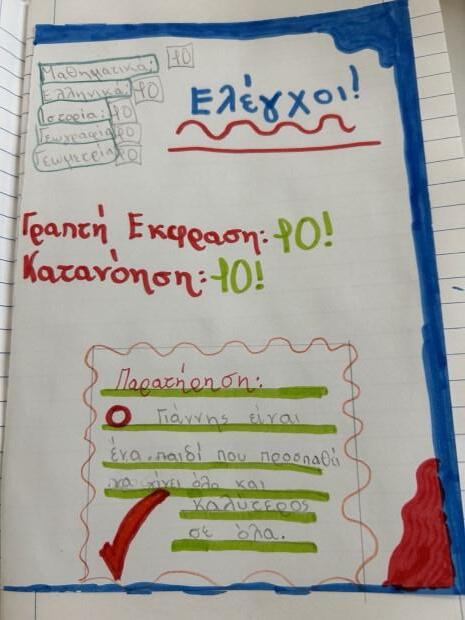 Μαθηματικά: 10
Ελληνικά: 10
Ιστορία: 10
Γεωγραφία: 10
Γεωμετρία: 10
Ελέγχοι!
Γραπτή Εκφραση: 10!
Κατανόηση: 10!
Παρατήρηση:
Ο Γιάννης είναι
ένα παιδί που προσπαθώ
να γίνει όλο και
καλύτερος
σε όλα.